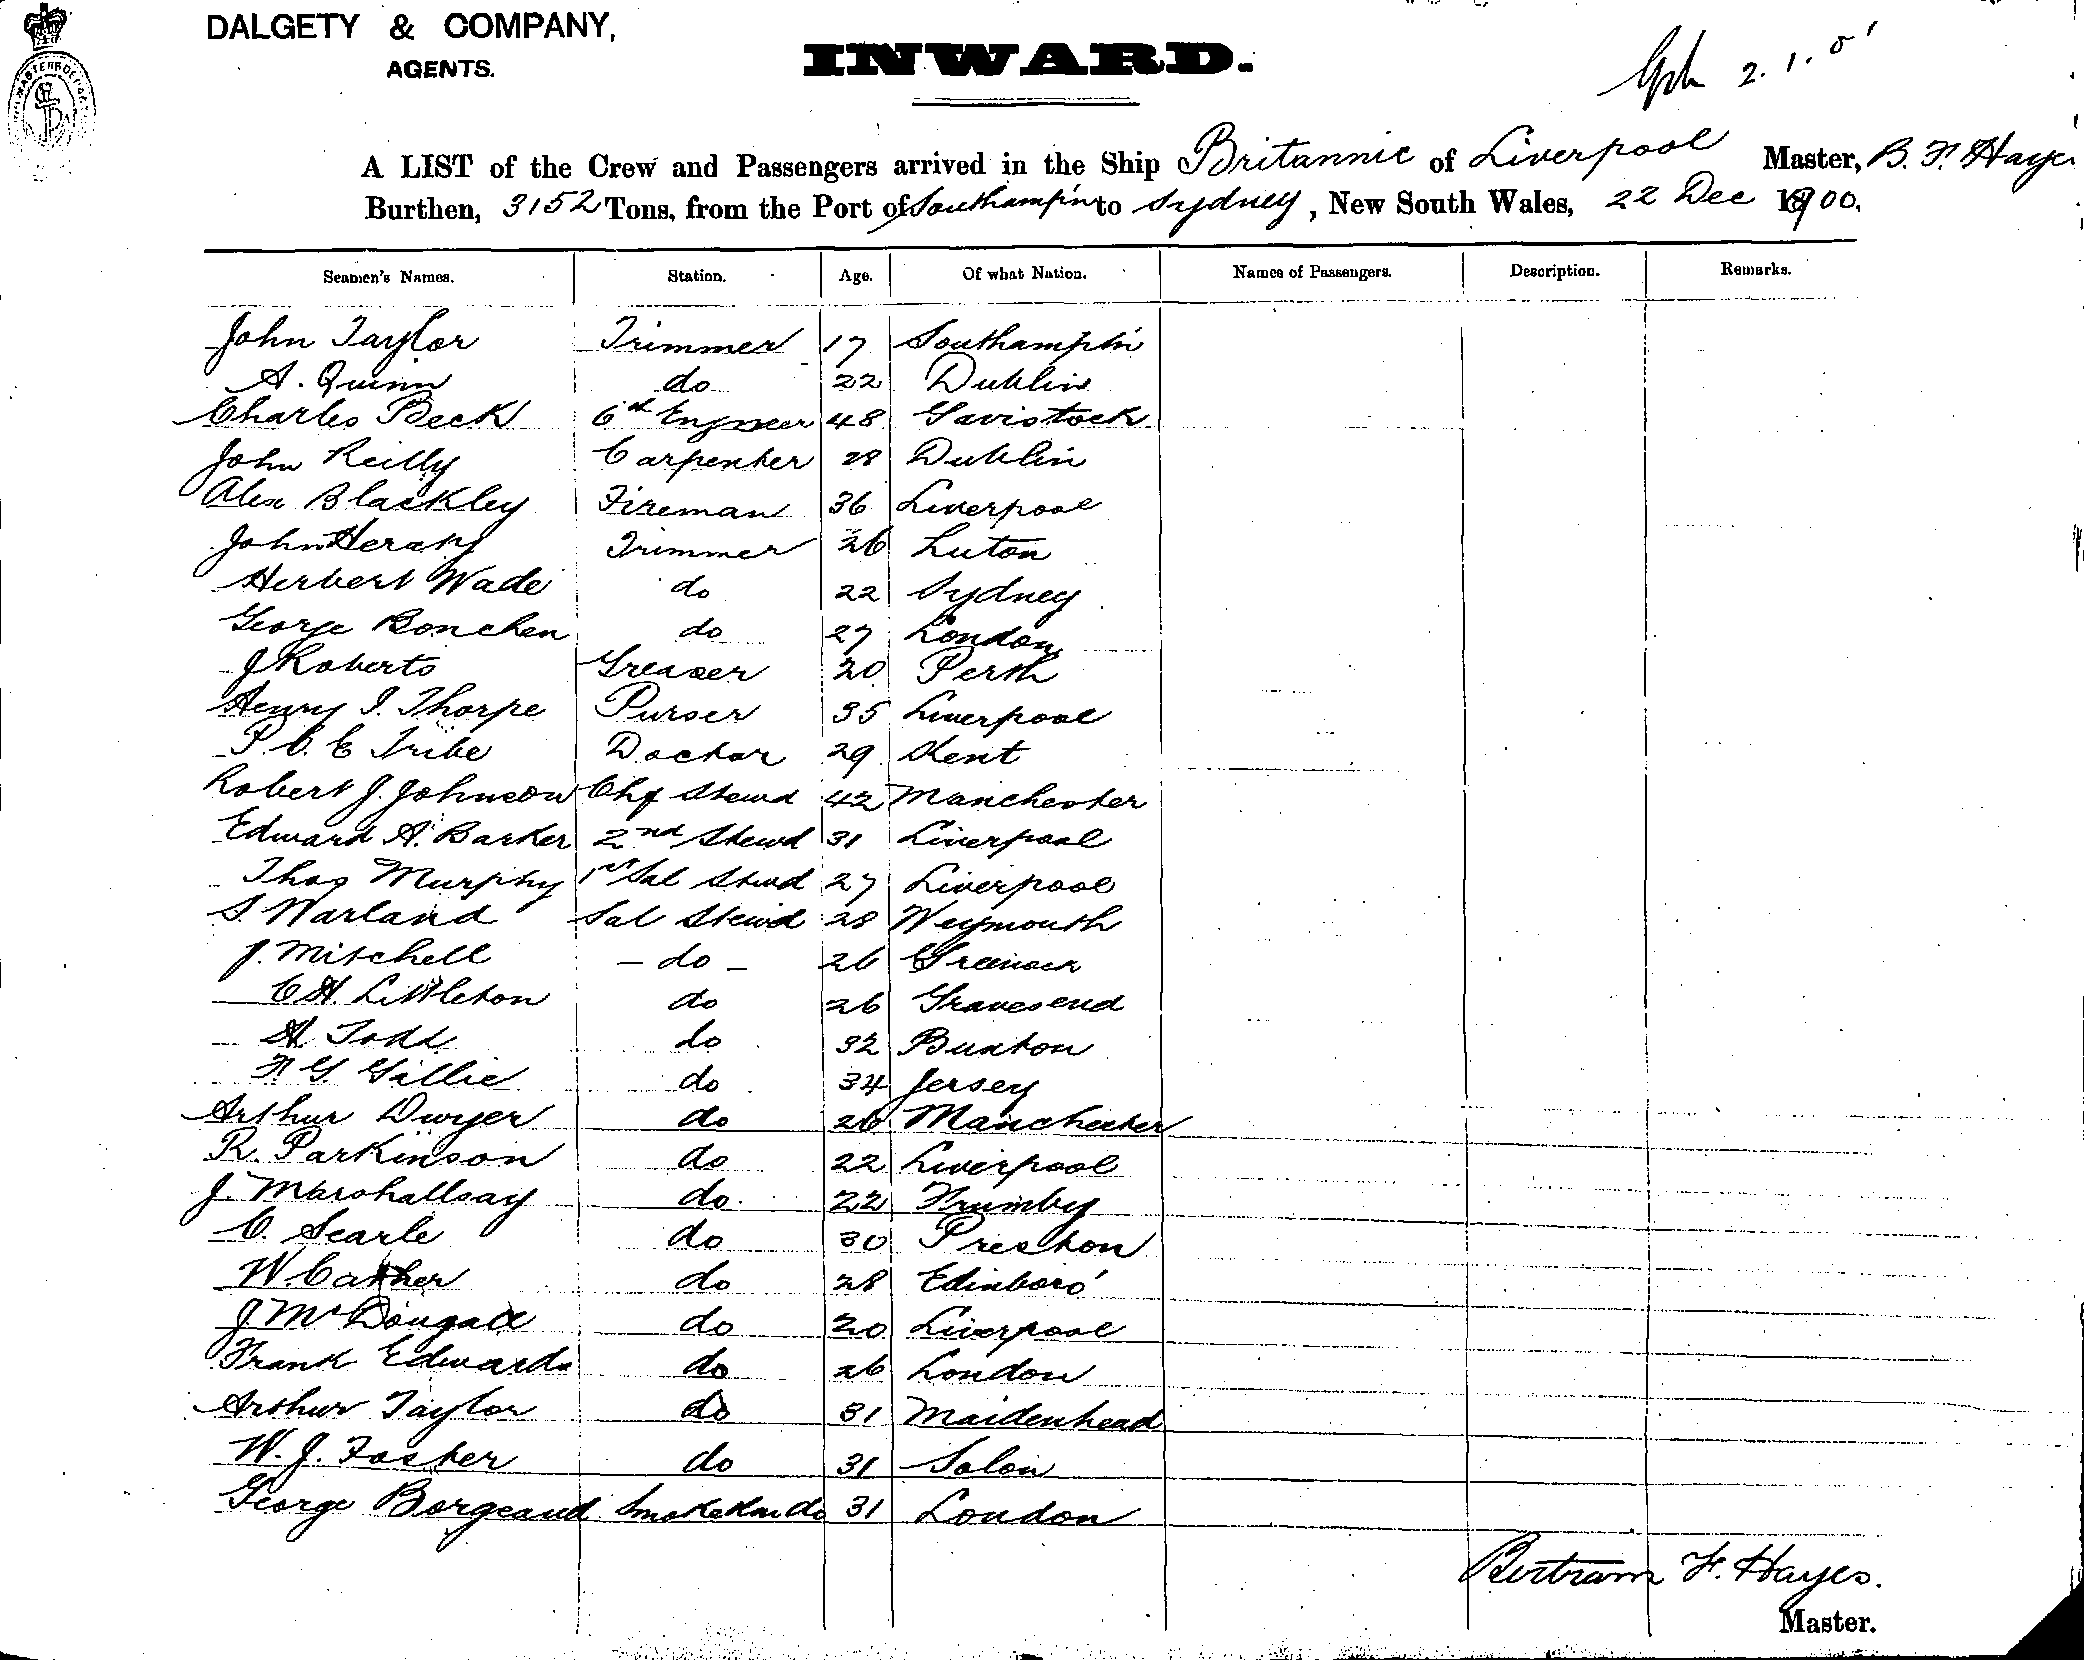 DALGETY & COMPANY,
AGENTS.
INWARD.
2.1.01
A LIST of the Crew and Passengers arrived in the Ship Britannic of Liverpool Master, B. F. Hayes
Burthen, 3152 Tons, from the Port of Southampn to Sydney, New South Wales, 22 Dec 1900.
Seamen's Names. Station. Age. Of what Nation. Names of Passengers. Description. Remarks.
John Taylor Trimmer 17 Southampn
A. Quinn do 22 Dublin
Charles Beck 6th Engineer 48 Tavistock
John Reilly Carpenter 28 Dublin
Alex Blackley Fireman 36 Liverpool
John Trimmer 26 Luton
Herbert Wade do 22 Sydney
George Bonchen do 27 London
J Roberts Greaser 20 Perth
Henry I. Thorpe Purser 35 Liverpool
P. O. C Tribe Doctor 29 Kent
Robert J. Johnson Chf Stewd 42 Manchester
Edward A. Barker 2nd Stewd 31 Liverpool
Thos Murphy 1st Sal Stewd 27 Liverpool
S. Warland Sal Stewd 28 Weymouth
J. Mitchell - do - 26 Greenock
C H. Littleton do 26 Gravesend
H Todd do 32 Buxton
F G Gillie do 34 Jersey
Arthur Dwyer do 26 Manchester
R. Parkinson do 22 Liverpool
J. Marshallsay do 22
C. Searle do 30 Preston
W. do 28 Edinboro'
J McDougall do 20 Liverpool
Frank Edwards do 26 London
Arthur Taylor do 31 Maidenhead
W. J. Foster do 31
George Borgeaud do 31 London
Bertram F. Hayes.
Master.